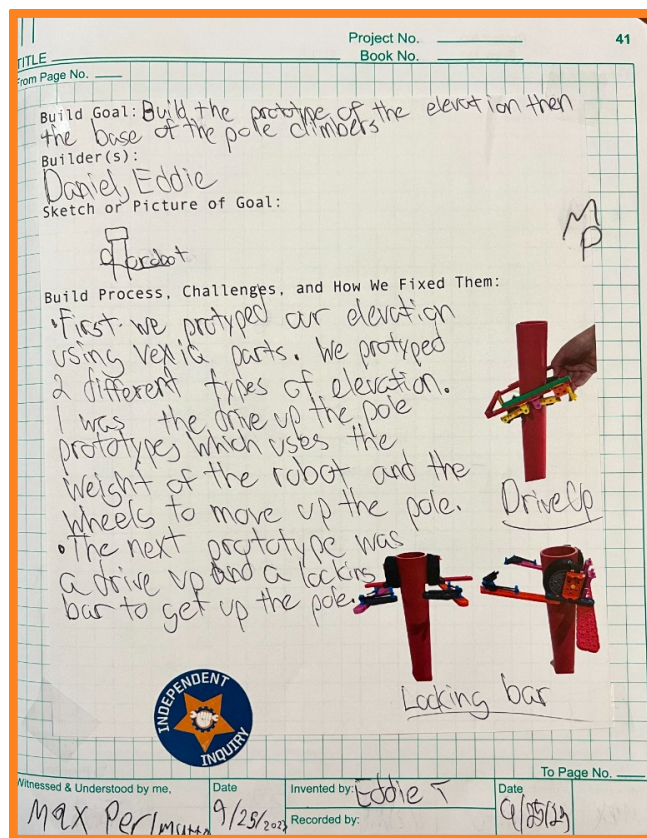 Project No.
41
TITLE
Book No.
From Page No.
Build Goal: Build the prototype of the elevation then
the base of the pole climbers
Builder(s):
Daniel, Eddie
Sketch or Picture of Goal:
robot
M
P
Build Process, Challenges, and How We Fixed Them:
• First we protyped our elevation
using Vex iQ parts. We protyped
2 different types of elevation.
1 was the drive up the pole
prototypes which uses the
weight of the robot and the
wheels to move up the pole.
Drive Up
• The next prototype was
a drive up and a locking
bar to get up the pole.
Locking bar
INDEPENDENT
INQUIRY
To Page No.
Witnessed & Understood by me,
Date
Invented by: Eddie T
Date
Max
9/25/2023
Recorded by:
9/25/23